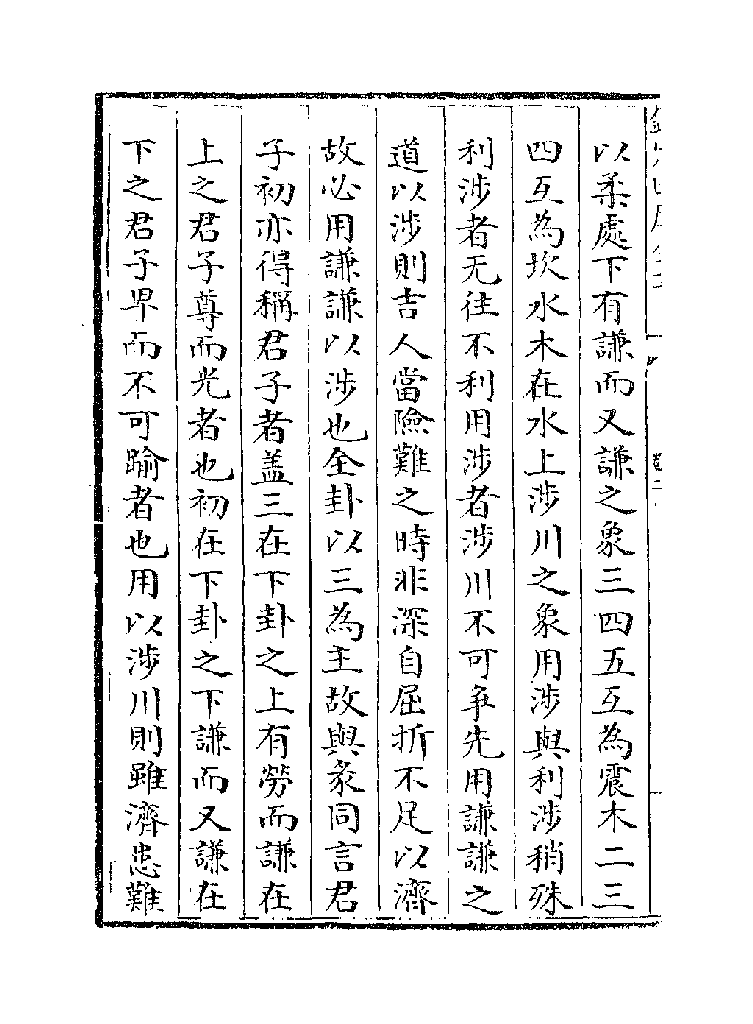 以柔處下有謙而又謙之象三四五互為震木二三
四互為坎水木在水上涉川之象用涉與利涉稍殊
利涉者无往不利用涉者涉川不可爭先用謙謙之
道以涉則吉人當險難之時非深自屈折不足以濟
故必用謙謙以涉也全卦以三為主故與彖同言君
子初亦得稱君子者盖三在下卦之上有勞而謙在
上之君子尊而光者也初在下卦之下謙而又謙在
下之君子卑而不可踰者也用以涉川則雖濟患難